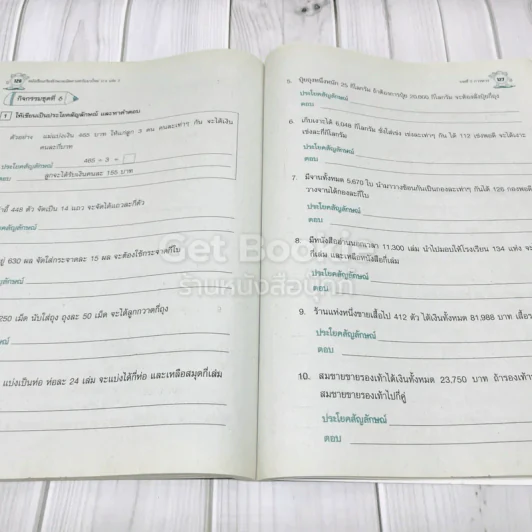 126
กิจกรรมชุดที่ 8
1 ให้เขียนเป็นประโยคสัญลักษณ์ และหาคำตอบ
ตัวอย่าง แม่แบ่งเงิน 465 บาท ให้แก่ลูก 3 คน คนละเท่าๆ กัน จะได้เงิน
คนละกี่บาท
ประโยคสัญลักษณ์ 465 ÷ 3 =
ตอบ ลูกจะได้รับเงินคนละ 155 บาท
448 ตัว จัดเป็น 14 แถว จะจัดได้แถวละกี่ตัว
สัญลักษณ์
630 ผล จัดใส่กระจาดละ 15 ผล จะต้องใช้กระจาดกี่ใบ
สัญลักษณ์
250 เม็ด นับใส่ถุง ถุงละ 50 เม็ด จะได้ลูกกวาดกี่ถุง
แบ่งเป็นห่อ ห่อละ 24 เล่ม จะแบ่งได้กี่ห่อ และเหลือสมุดกี่เล่ม
127
5. ปุ๋ยถุงหนึ่งหนัก 25 กิโลกรัม ถ้าต้องการปุ๋ย กิโลกรัม จะต้องซื้อปุ๋ยกี่ถุง
ประโยคสัญลักษณ์
ตอบ
6. เก็บเงาะได้ กิโลกรัม ชั่งใส่เข่ง เข่งละเท่าๆ กัน ได้ 112 เข่งพอดี จะได้เงาะ
เข่งละกี่กิโลกรัม
ประโยคสัญลักษณ์
ตอบ
7. มีจานทั้งหมด 5,670 ใบ นำมาวางซ้อนกันเป็นกองละเท่าๆ กันได้ 126 กองพอดี
วางจานได้กองละกี่ใบ
ประโยคสัญลักษณ์
ตอบ
8. มีหนังสืออ่านนอกเวลา 11,300 เล่ม นำไปมอบให้โรงเรียน 134 แห่ง
กี่เล่ม และเหลือหนังสือกี่เล่ม
ประโยคสัญลักษณ์
ตอบ
9. ร้านแห่งหนึ่งขายเสื้อไป 412 ตัว ได้เงินทั้งหมด 81,988 บาท เสื้อ
ประโยคสัญลักษณ์
ตอบ
10. สมชายขายรองเท้าได้เงินทั้งหมด 23,750 บาท ถ้ารองเท้า
สมชายขายรองเท้าไปกี่คู่
ประโยคสัญลักษณ์
ตอบ
Get Book
ร้านหนังสือ